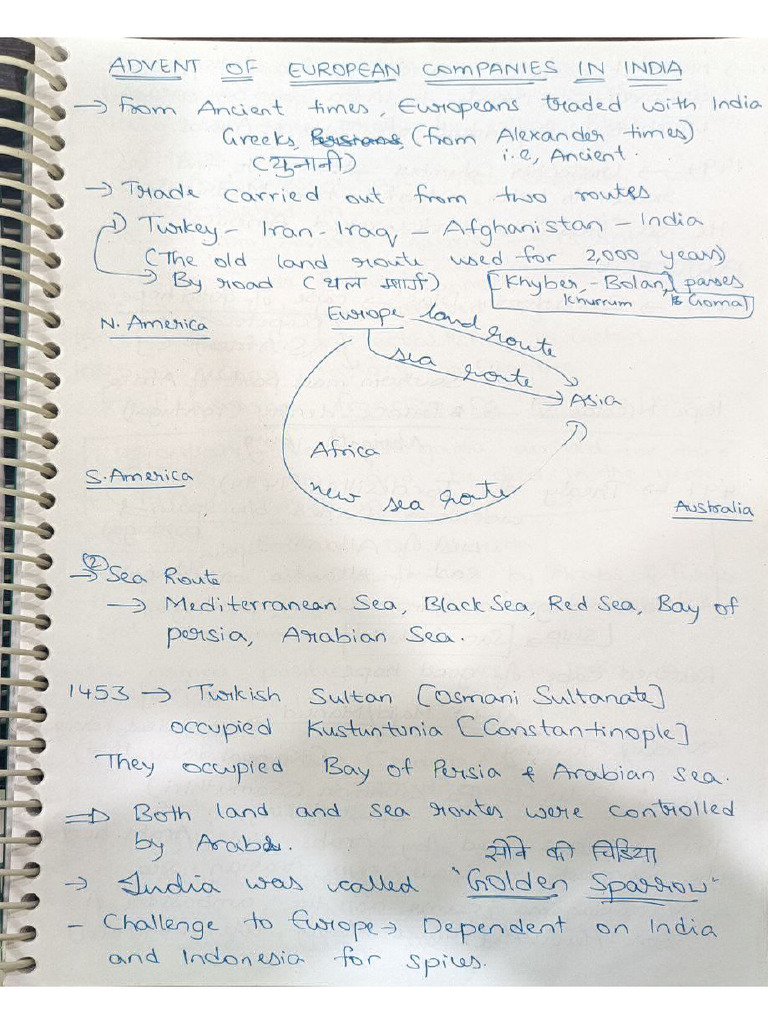 ADVENT OF EUROPEAN COMPANIES IN INDIA
→ From Ancient times, Europeans traded with India
Greeks, Persians, (from Alexander times)
(युनानी) i.e, Ancient.
→ Trade carried out from two routes
1) Turkey - Iran - Iraq - Afghanistan - India
(The old land route used for 2,000 years)
→ By road (थल मार्ग) [Khyber, - Bolan,] passes
Khurrum & Gomal
N. America
Europe land route
sea route
Asia
Africa
S. America
new sea route
Australia
② → Sea Route
→ Mediterranean Sea, Black Sea, Red Sea, Bay of
persia, Arabian Sea.
1453 → Turkish Sultan [Osmani Sultanate]
occupied Kustuntunia [Constantinople]
They occupied Bay of Persia & Arabian Sea.
⇒ Both land and sea routes were controlled
by Arabs.
सोने की चिडिया
→ India was called "Golden Sparrow"
- Challenge to Europe → Dependent on India
and Indonesia for spices.